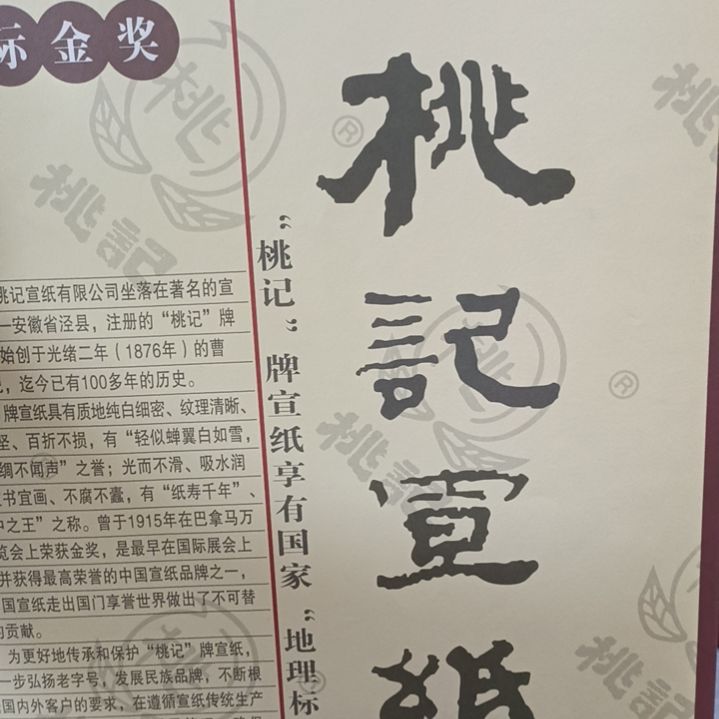 际金奖
桃記宣紙
“桃记”牌宣纸享有国家“地理标
桃记宣纸有限公司坐落在著名的宣
—安徽省泾县，注册的“桃记”牌
始创于光绪二年（1876年）的曹
记，迄今已有100多年的历史。
牌宣纸具有质地纯白细密、纹理清晰、
坚、百折不损，有“轻似蝉翼白如雪，
绸不闻声”之誉；光而不滑、吸水润
书宜画、不腐不蠹，有“纸寿千年”、
中之王”之称。曾于1915年在巴拿马万
览会上荣获金奖，是最早在国际展会上
并获得最高荣誉的中国宣纸品牌之一，
国宣纸走出国门享誉世界做出了不可替
的贡献。
为更好地传承和保护“桃记”牌宣纸，
一步弘扬老字号，发展民族品牌，不断根
国内外客户的要求，在遵循宣纸传统生产
桃記
桃記
桃記
桃記